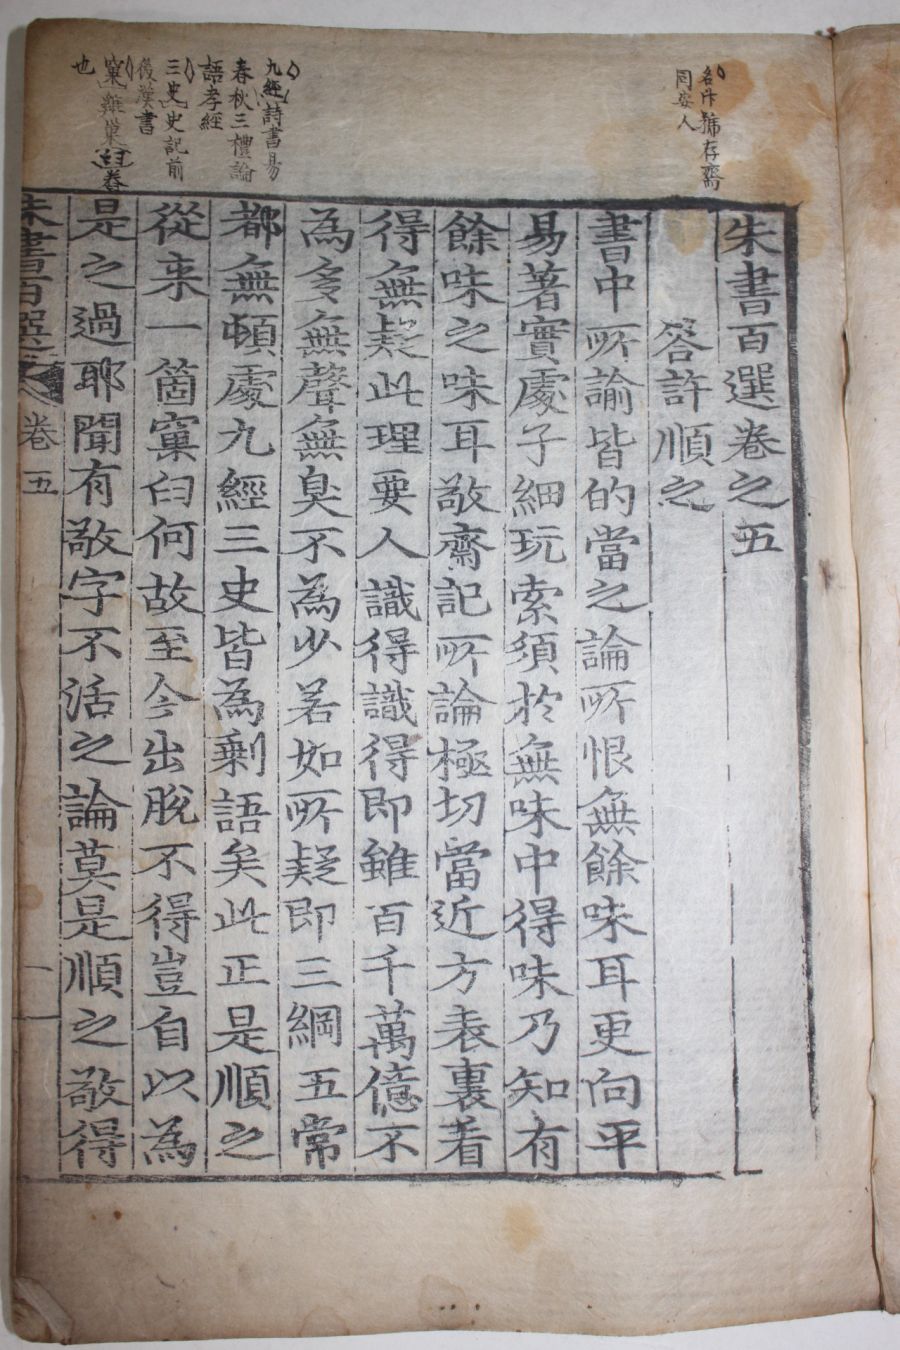 名升號存齋
同安人
九經詩書易
春秋三禮論
語孝經
三史史記前
後漢書
窠雞巢臼舂
也
朱書百選卷之五
答許順之
書中所諭皆的當之論所恨無餘味耳更向平
易著實處子細玩索須於無味中得味乃知有
餘味之味耳敬齋記所論極切當近方表裏着
得無疑此理要人識得識得即雖百千萬億不
為多無聲無臭不為少若如所疑即三綱五常
都無頓處九經三史皆為剩語矣此正是順之
從來一箇窠臼何故至今出脫不得豈自以為
是之過耶聞有敬字不活之論莫是順之敬得
朱書百選 卷五 一